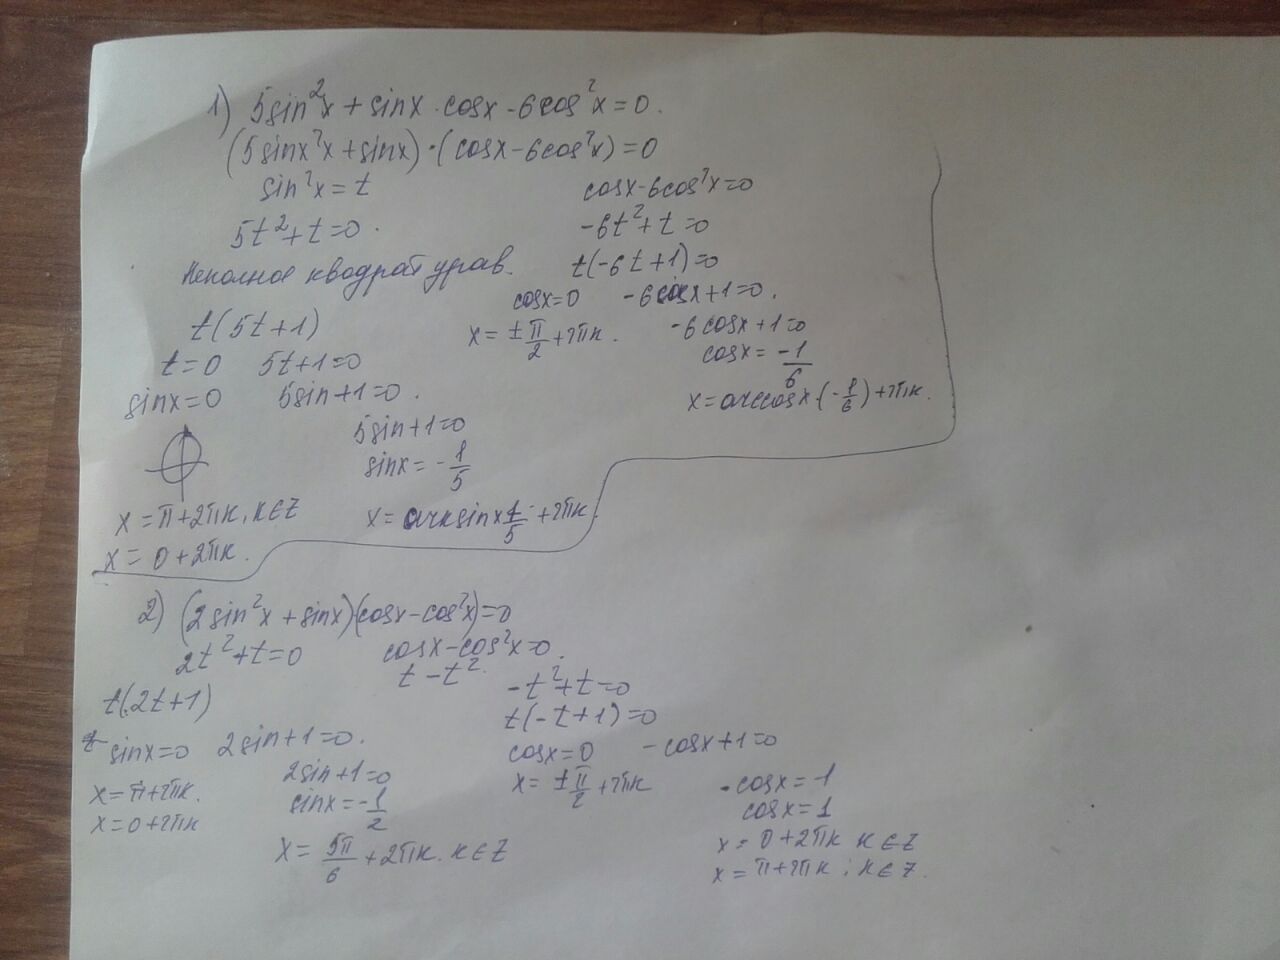 1) 5sin²x + sinx · cosx - 6cos²x = 0.
(5sinx²x + sinx) · (cosx - 6cos²x) = 0
sin²x = t
5t² + t = 0.
Неполное квадрат урав.
t(5t+1)
t = 0 5t+1=0
sinx=0 5sin+1=0.
5sin+1=0
sinx = -1/5
x = π+2πк, к∈Z
x = 0+2πк.
x = arksinx 1/5 + 2πк.
cosx-6cos²x=0
-6t²+t=0
t(-6t+1)=0
cosx=0 -6cosx+1=0.
x = ±π/2 + 2πк.
-6cosx+1=0
cosx = -1/6
x = arccosx·(-1/6)+2πк.
2) (2sin²x + sinx)·(cosx-cos²x)=0
2t²+t=0
t(2t+1)
sinx=0 2sin+1=0.
x = π+2πк.
x = 0+2πк
2sin+1=0
sinx = -1/2
x = 5π/6 + 2πк. к∈Z
cosx-cos²x=0.
t-t².
-t²+t=0
t(-t+1)=0
cosx=0 -cosx+1=0
x = ±π/2 + 2πк
-cosx = -1
cosx = 1
x = 0+2πк к∈Z
x = π+2πк; к∈Z.